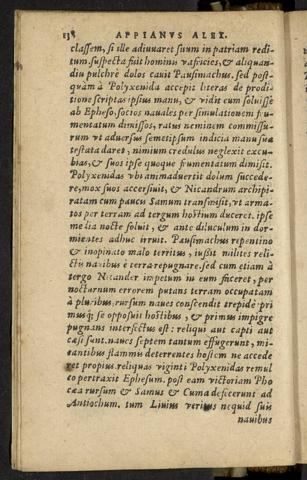 138 APPIANVS ALEX.
classem, si ille adiuvaret suum in patriam redi
tum. suspecta fuit hominis vafricies, & aliquan
diu pulchrè dolos cauit Pausimachus. sed post-
quàm à Polyxenida accepit literas de prodi-
tione scriptas ipsius manu, & vidit eum soluisse
ab Epheso, socios nauales per simulationem fru
mentatum dimissos, ratus neminem commissu-
rum vt aduersus semetipsum indicia manu sua
testata daret, nimium credulus neglexit excu-
bias, & suos ipse quoque frumentatum dimisit.
Polyxenidas vbi animaduertit dolum succede-
re, mox suos accersiuit, & Nicandrum archipi-
ratam cum paucis Samum transmisit, vt arma-
tos per terram ad tergum hostium duceret. ipse
media nocte soluit, & ante diluculum in dor-
mientes adhuc irruit. Pausimachus repentino
& inopinato malo territus, iussit milites relic-
tis nauibus è terra repugnare. sed cum etiam à
tergo Nicander impetum in eum faceret, per
nocturnum errorem putans terram occupatam
à pluribus, rursum naues conscendit trepidè pri
musq; se opposuit hostibus, & primus impigre
pugnans interfectus est: reliqui aut capti aut
cæsi sunt. naues septem tantum effugerunt, mi-
cantibus flammis deterrentes hostem ne accede
ret propius. reliquas viginti Polyxenidas remul
co pertraxit Ephesum. post eam victoriam Pho
cæa rursum & Samus & Cuma defecerunt ad
Antiochum. tum Liuius veritus nequid suis
nauibus